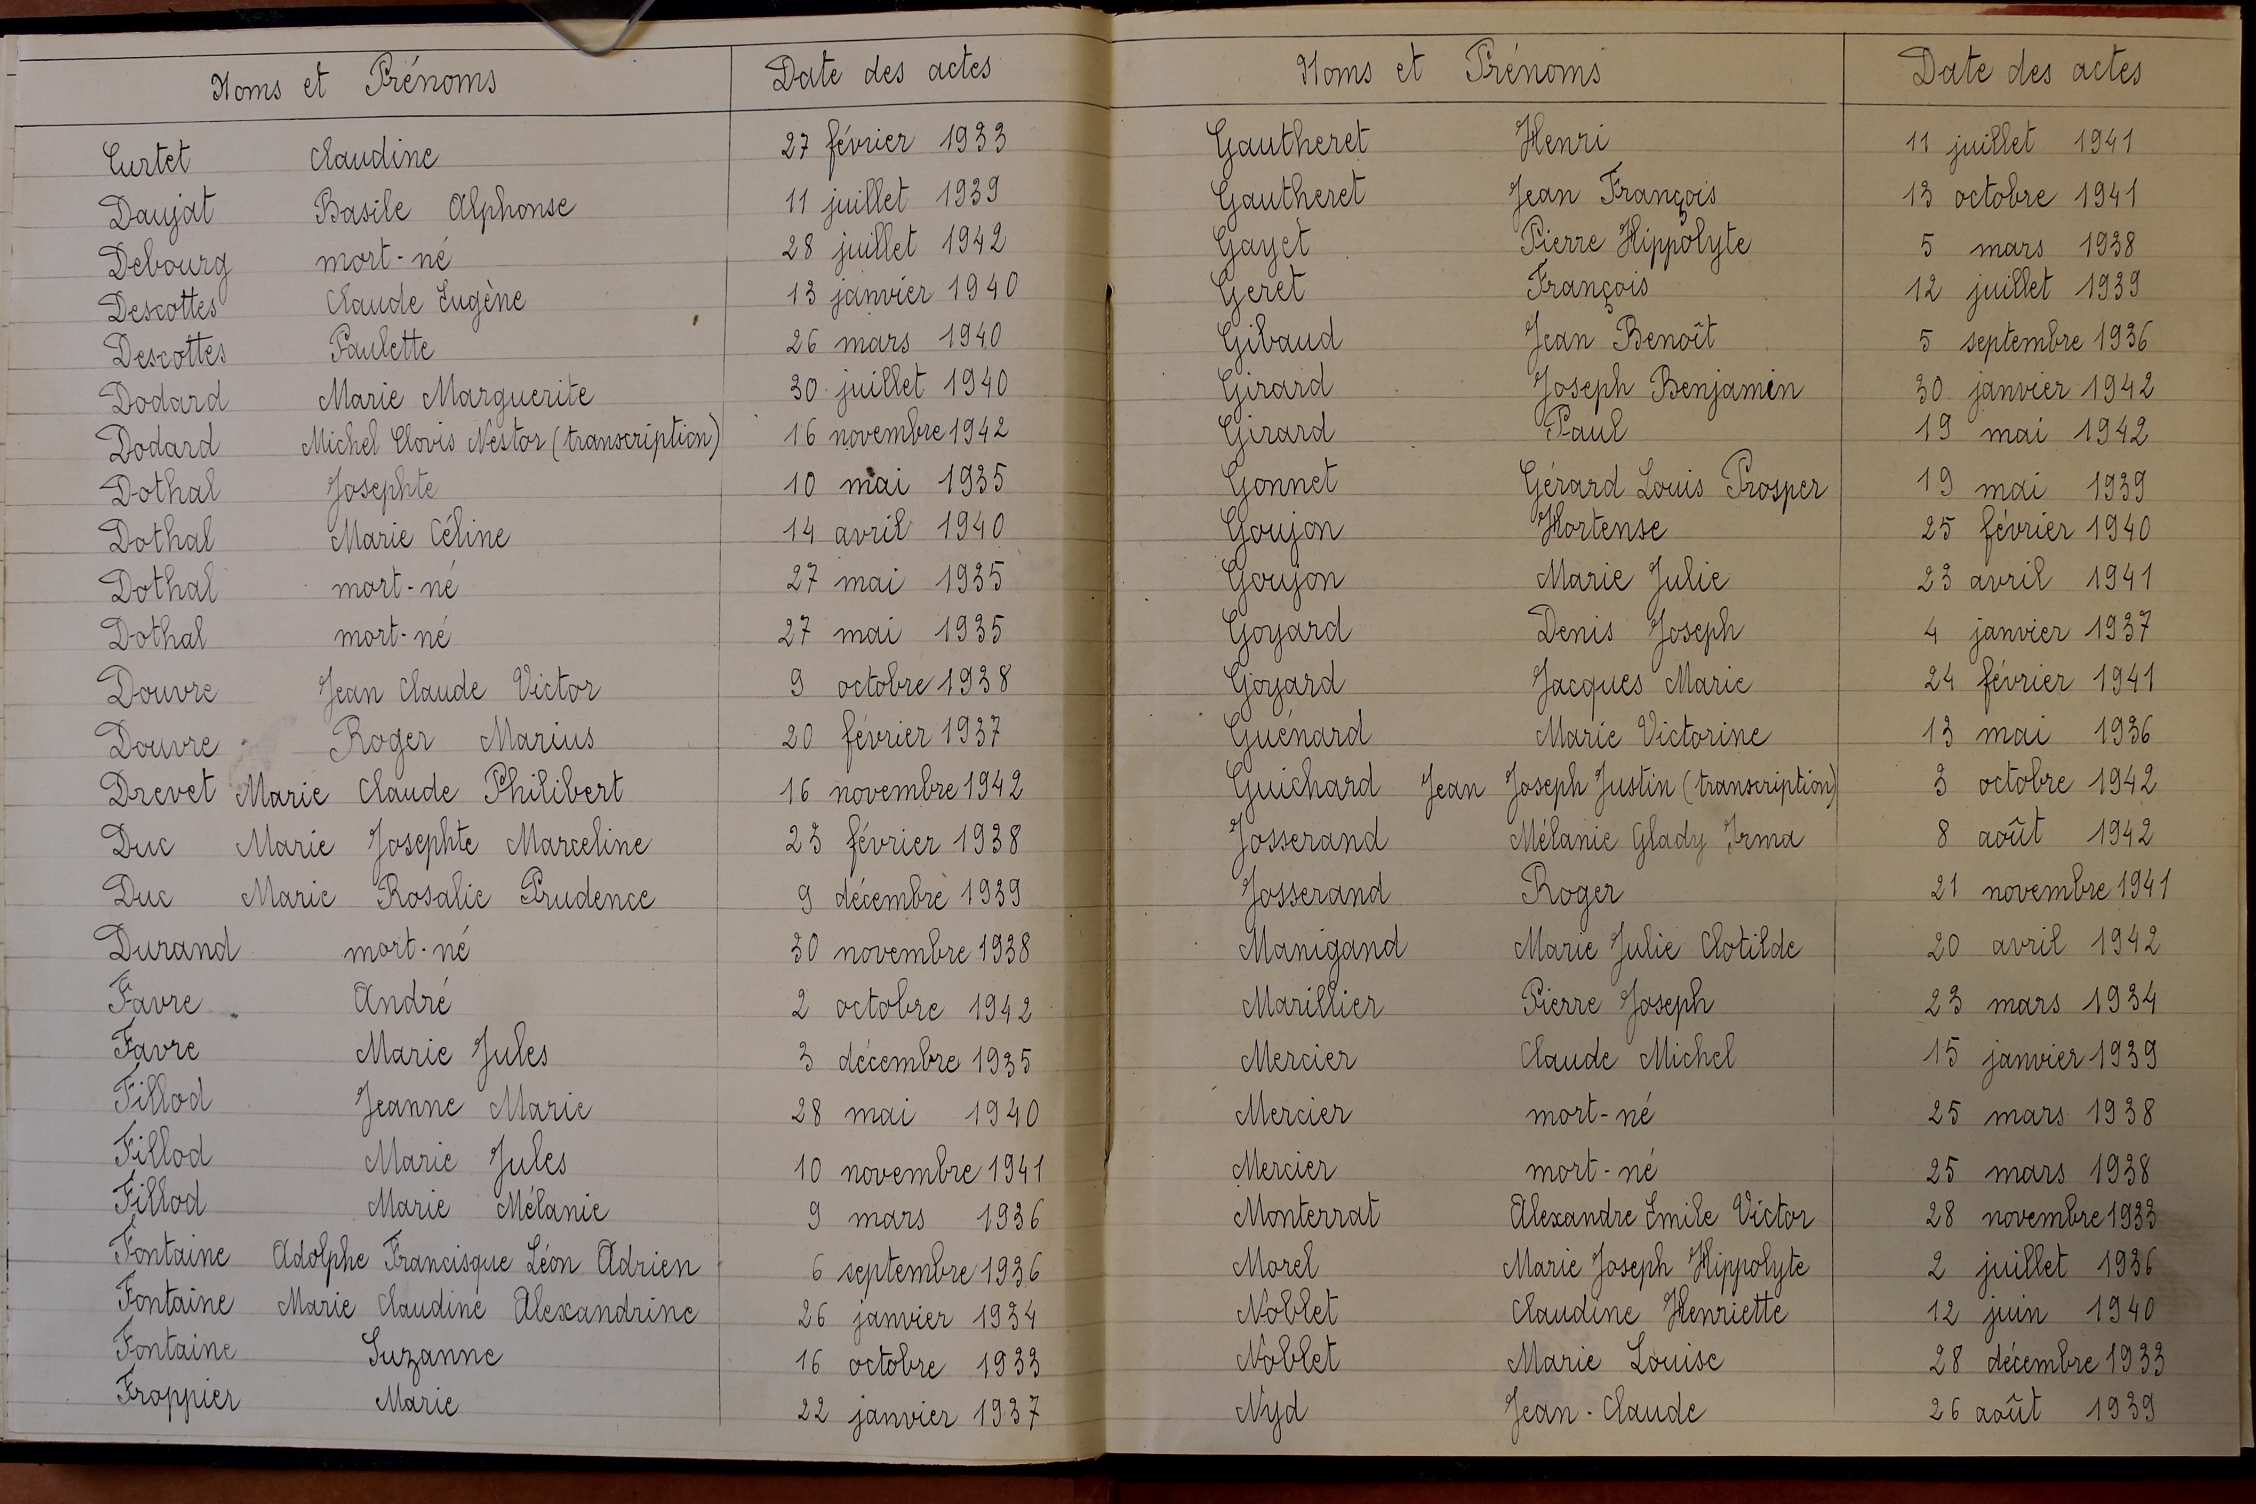 Noms et Prénoms Date des actes
Curtet Claudine 27 février 1933
Daujat Basile Alphonse 11 juillet 1939
Debourg mort-né 28 juillet 1942
Descottes Claude Eugène 13 janvier 1940
Descottes Paulette 26 mars 1940
Dodard Marie Marguerite 30 juillet 1940
Dodard Michel Clovis Nestor (transcription) 16 novembre 1942
Dothal Josephte 10 mai 1935
Dothal Marie Céline 14 avril 1940
Dothal mort-né 27 mai 1935
Dothal mort-né 27 mai 1935
Douvre Jean Claude Victor 9 octobre 1938
Douvre Roger Marius 20 février 1937
Drevet Marie Claude Philibert 16 novembre 1942
Duc Marie Josephte Marceline 23 février 1938
Duc Marie Rosalie Prudence 9 décembre 1939
Durand mort-né 30 novembre 1938
Favre André 2 octobre 1942
Favre Marie Jules 3 décembre 1935
Fillod Jeanne Marie 28 mai 1940
Fillod Marie Jules 10 novembre 1941
Fillod Marie Mélanie 9 mars 1936
Fontaine Adolphe Francisque Léon Adrien 6 septembre 1936
Fontaine Marie Claudine Alexandrine 26 janvier 1934
Fontaine Suzanne 16 octobre 1933
Froppier Marie 22 janvier 1937
Noms et Prénoms Date des actes
Gautheret Henri 11 juillet 1941
Gautheret Jean François 13 octobre 1941
Gayet Pierre Hippolyte 5 mars 1938
Geret François 12 juillet 1939
Gibaud Jean Benoît 5 septembre 1936
Girard Joseph Benjamin 30 janvier 1942
Girard Paul 19 mai 1942
Gonnet Gérard Louis Prosper 19 mai 1939
Goujon Hortense 25 février 1940
Goujon Marie Julie 23 avril 1941
Goyard Denis Joseph 4 janvier 1937
Goyard Jacques Marie 24 février 1941
Guénard Marie Victorine 13 mai 1936
Guichard Jean Joseph Justin (transcription) 3 octobre 1942
Josserand Mélanie Glady Irma 8 août 1942
Josserand Roger 21 novembre 1941
Manigand Marie Julie Clotilde 20 avril 1942
Marillier Pierre Joseph 23 mars 1934
Mercier Claude Michel 15 janvier 1939
Mercier mort-né 25 mars 1938
Mercier mort-né 25 mars 1938
Monterrat Alexandre Emile Victor 28 novembre 1933
Morel Marie Joseph Hippolyte 2 juillet 1936
Noblet Claudine Henriette 12 juin 1940
Noblet Marie Louise 28 décembre 1933
Nyd Jean-Claude 26 août 1939